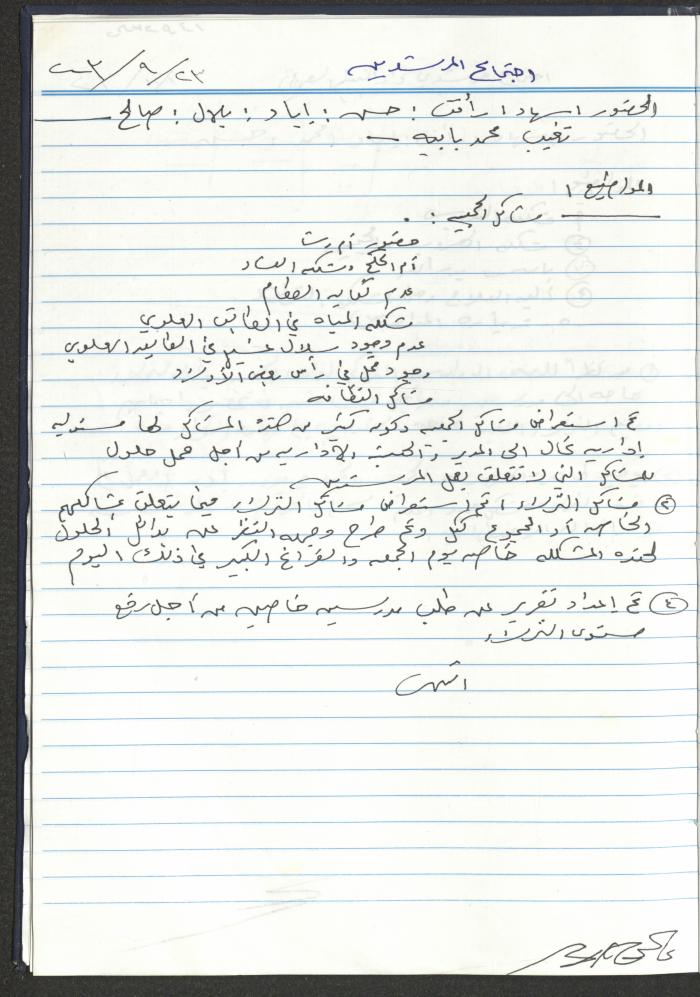 اجتماع المرشدين ٢٠٠٣/٩/٢٣
الحضور: سهاد: رأفت: حسن: إياد: بلال: صالح
تغيب محمد بابيه
المواضيع:
مشاكل الجمعية:
حضور أم رشا
أم الحكم ومشكلة الفساد
عدم كفاية الطعام
مشكلة المياه في الطابق العلوي
عدم وجود سلال غسيل في الطابق العلوي
وجود قمل في رأس بعض الأولاد
مشاكل النظافه
تم استعراض مشاكل الجمعيه وكون كثير من هذه المشاكل لها مسئوليه
إداريه تحال الى المدير والهيئة الاداريه من أجل عمل حلول
للمشاكل التي لا تتعلق بعمل المرشدين
٢ مشاكل النزلاء: تم استعراض مشاكل النزلاء فيما يتعلق بمشاكلهم
الخاصه أو المجموع ككل وتم طرح وجهه النظر عن بدائل الحلول
لهذه المشكله خاصه يوم الجمعه والفراغ الكبير في ذلك اليوم
٤ تم إعداد تقرير عن طلب مدرسين خاصين من أجل رفع
مستوى النزلاء
انتهى